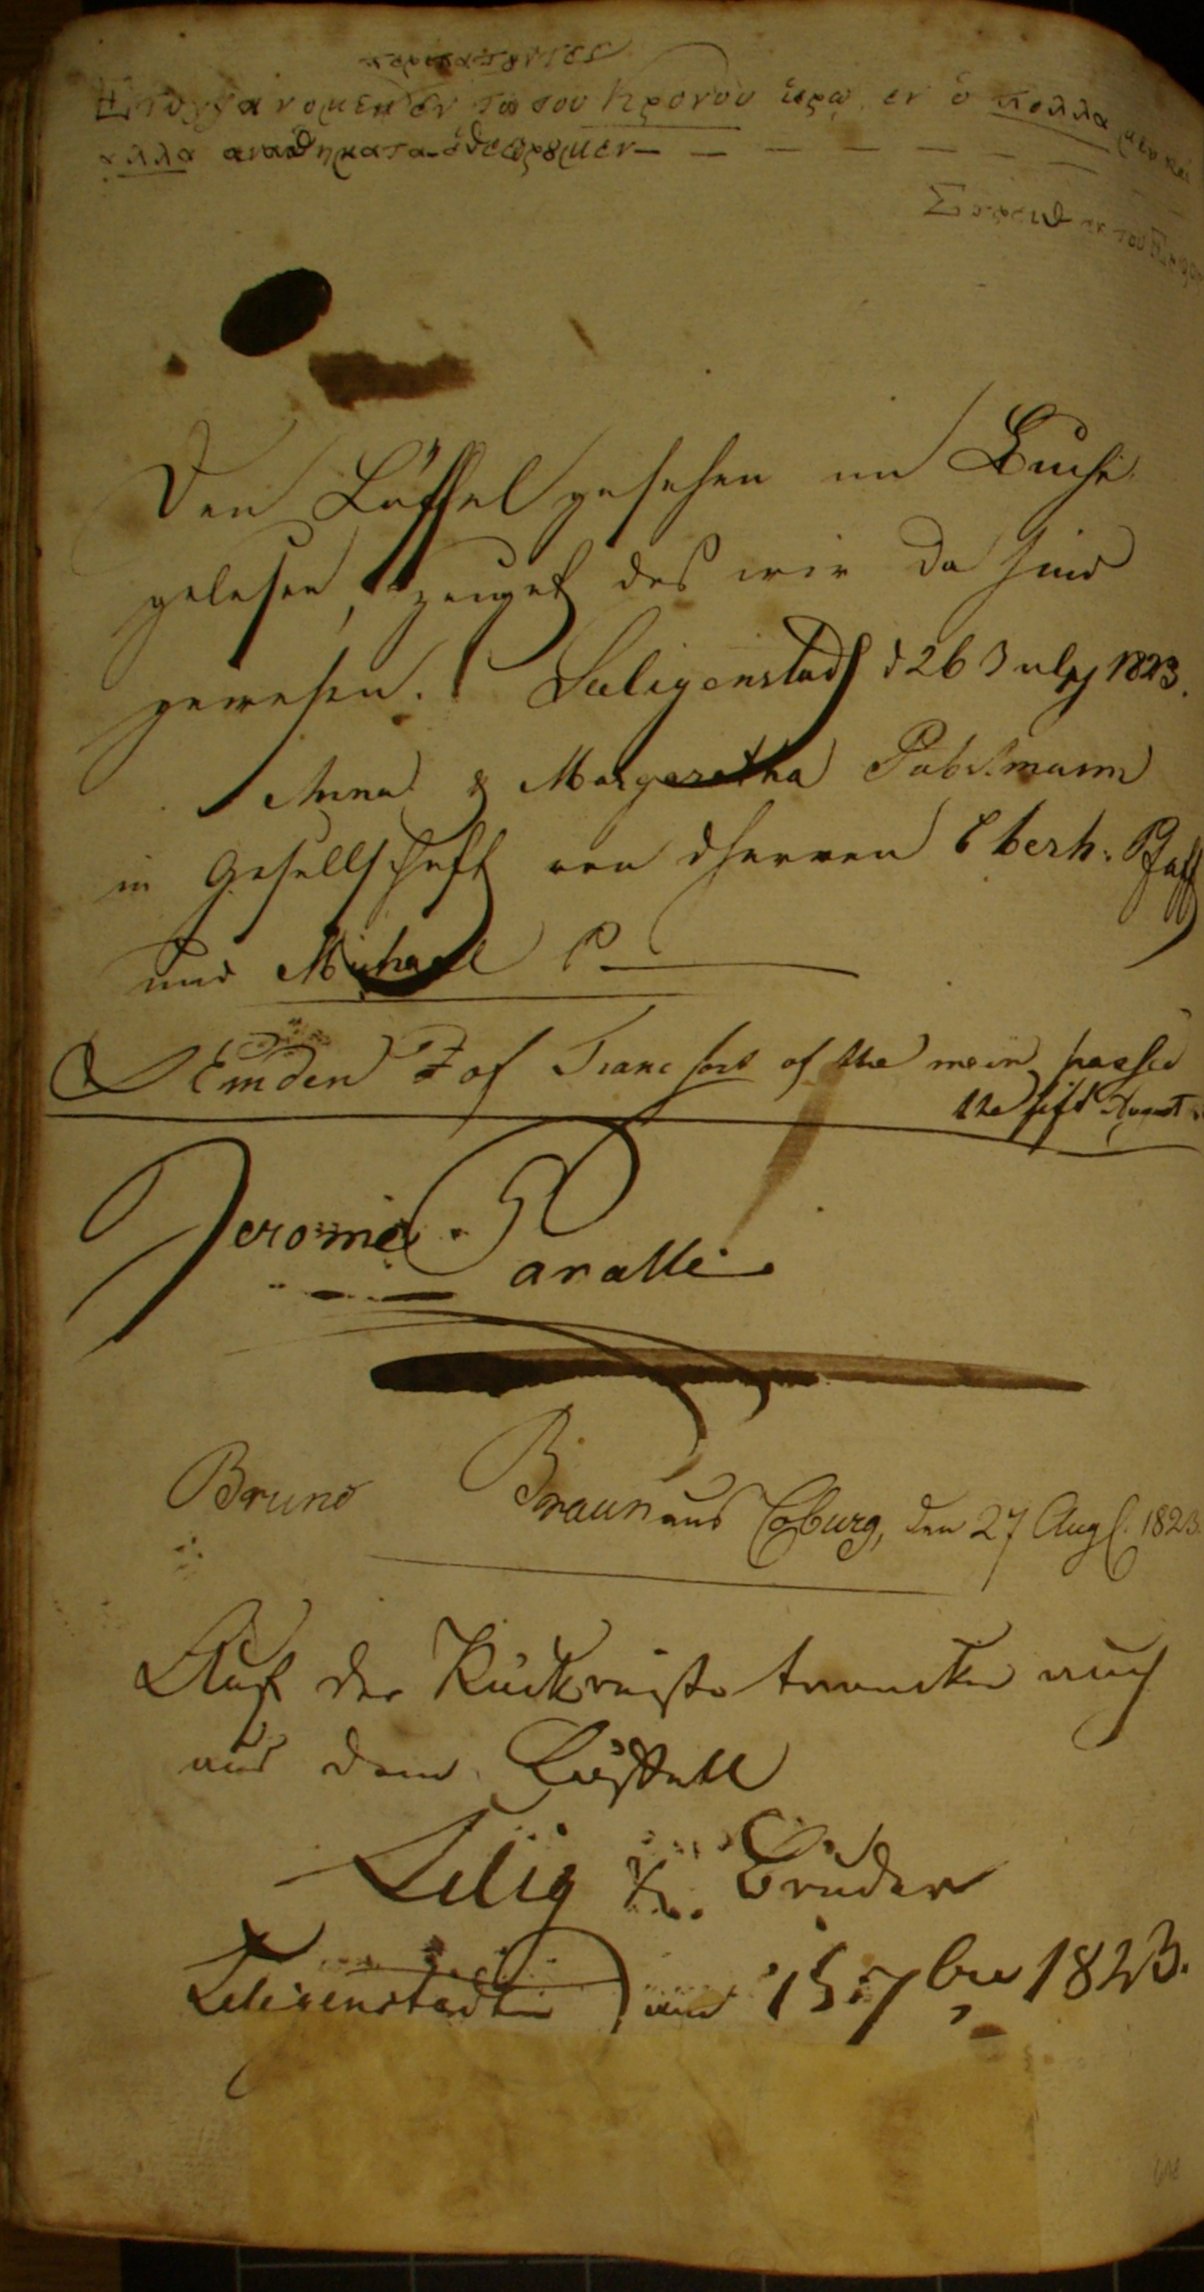 περιπατουντες
Ετυγχανομεν εν τω του Κρονου ιερω, εν ὁ πολλα μεν και
αλλα αναθηματα εθεωρουμεν
Den Löffel gesehen im Buche
gelesen, zeuget das wir da sind
gewesen. Seligenstadt d 26 July 1823.
Anna & Margaretha
in Gesellschaft von dHerren Eberh: Pfaff
und Michael P
Emden of Francfort of the mein passed
the fift August
Jerome Caralli
Bruno Braun aus Coburg, den 27 Aug. 1823
Auf der Rückreise trancken auch
aus dem Löffell
Selig & Bruder
Seligenstadt am 15 7bre 1823.